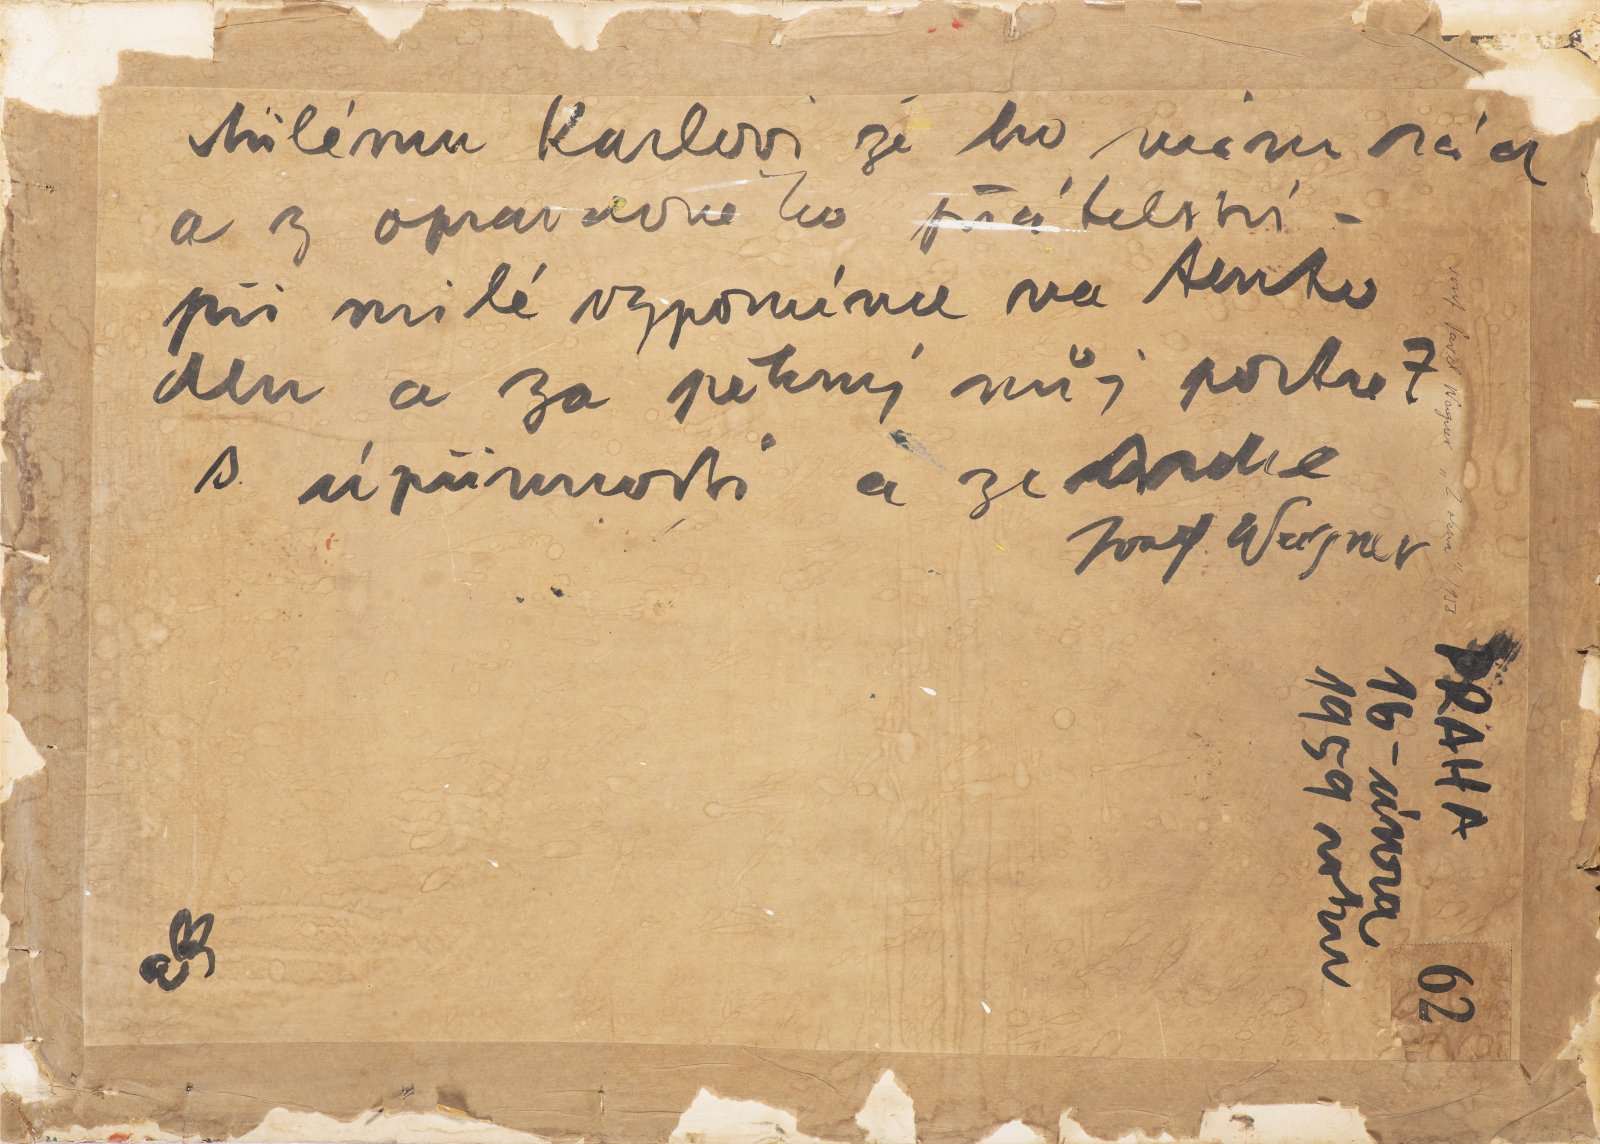 Milému Karlovi že ho mám rád
a z opravdového přátelství -
při milé vzpomínce na tento
den a za pěkný můj portret
s upřímností a ze srdce
Josef Wagner
Josef Wagner "Z 1953
PRAHA
16 - února
1959 rohu
62